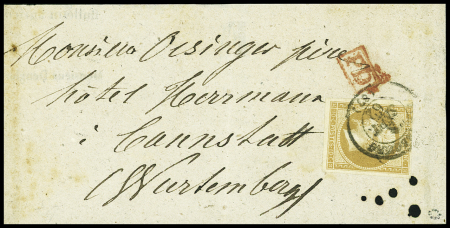 Monsieur Oesinger père
hôtel Herrmann
à Cannstatt
(Wurtemberg)
PD